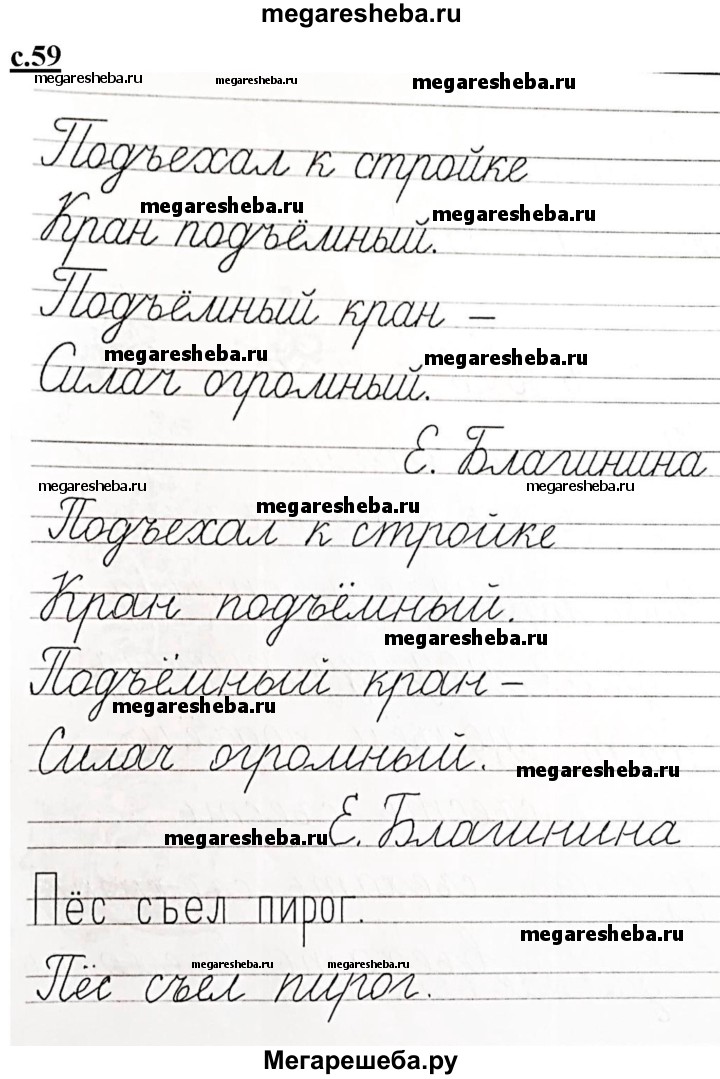 megaresheba.ru
с.59
megaresheba.ru megaresheba.ru megaresheba.ru
Подъехал к стройке
megaresheba.ru megaresheba.ru
Кран подъёмный.
Подъёмный кран –
megaresheba.ru megaresheba.ru
Силач огромный.
Е. Благинина
megaresheba.ru megaresheba.ru megaresheba.ru
Подъехал к стройке
Кран подъёмный.
megaresheba.ru
Подъёмный кран –
megaresheba.ru
Силач огромный.
megaresheba.ru
megaresheba.ru Е. Благинина
Пёс съел пирог.
megaresheba.ru
megaresheba.ru megaresheba.ru
Пёс съел пирог.
Мегарешеба.ру